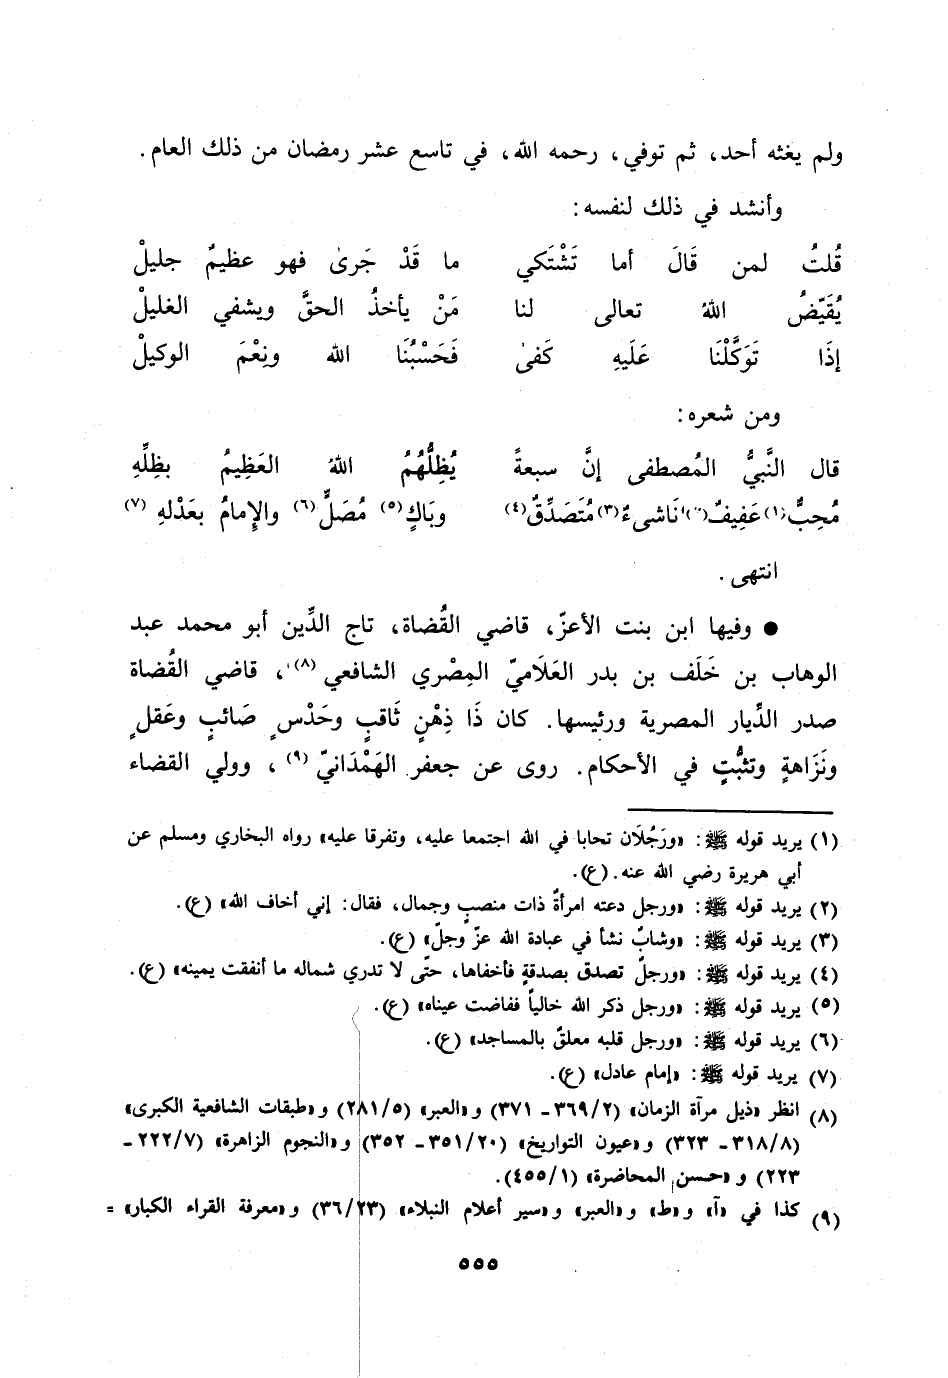 ولم يغثه أحد، ثم توفي، رحمه الله، في تاسع عشر رمضان من ذلك العام.
وأنشد في ذلك لنفسه:
قُلتُ لمن قَالَ أما تَشْتَكي ما قَدْ جَرىٰ فهو عظيمٌ جليلْ
يُقَيّضُ اللهُ تعالى لنا مَنْ يأخذُ الحقَّ ويشفي الغليلْ
إذَا تَوَكَّلْنَا عَلَيهِ كَفىٰ فَحَسْبُنَا الله ونِعْمَ الوكيلْ
ومن شعره:
قال النَّبيُّ المُصطفى إنَّ سبعةً يُظِلُّهُمُ اللهُ العَظِيمُ بظِلِّهِ
مُحِبٌّ(١) عَفِيفٌ(٢) نَاشىءٌ(٣) مُتَصَدِّقٌ(٤) وبَاكٍ(٥) مُصَلٍّ(٦) والإِمامُ بعَدْلهِ(٧)
انتهى.
● وفيها ابن بنت الأعزّ، قاضي القُضاة، تاج الدِّين أبو محمد عبد
الوهاب بن خَلَف بن بدر العَلَاميّ المِصْري الشافعي(٨)، قاضي القُضاة
صدر الدِّيار المصرية ورئيسها. كان ذَا ذِهْنٍ ثَاقبٍ وحَدْسٍ صَائبٍ وعَقلٍ
ونَزَاهةٍ وتثبُّتٍ في الأحكام. روى عن جعفر الهَمْدَانيّ(٩)، وولي القضاء
(١) يريد قوله ﷺ: «ورَجُلَان تحابا في الله اجتمعا عليه، وتفرقا عليه» رواه البخاري ومسلم عن
أبي هريرة رضي الله عنه. (ع).
(٢) يريد قوله ﷺ: «ورجل دعته امرأةً ذات منصبٍ وجمال، فقال: إني أخاف الله» (ع).
(٣) يريد قوله ﷺ: «وشابٌ نشأ في عبادة الله عزّ وجلّ» (ع).
(٤) يريد قوله ﷺ: «ورجلٌ تصدق بصدقةٍ فأخفاها، حتّى لا تدري شماله ما أنفقت يمينه» (ع).
(٥) يريد قوله ﷺ: «ورجل ذكر الله خالياً ففاضت عيناه» (ع).
(٦) يريد قوله ﷺ: «ورجل قلبه معلقٌ بالمساجد» (ع).
(٧) يريد قوله ﷺ: «إمام عادل» (ع).
(٨) انظر «ذيل مرآة الزمان» (٣٦٩/٢ - ٣٧١) و«العبر» (٢٨١/٥) و«طبقات الشافعية الكبرى»
(٣١٨/٨ - ٣٢٣) و«عيون التواريخ» (٣٥١/٢٠ - ٣٥٢) و«النجوم الزاهرة» (٢٢٢/٧ -
٢٢٣) و «حسن المحاضرة» (٤٥٥/١).
(٩) كذا في «آ» و«ط» و«العبر» و«سير أعلام النبلاء» (٣٦/٢٣) و«معرفة القراء الكبار» =
٥٥٥